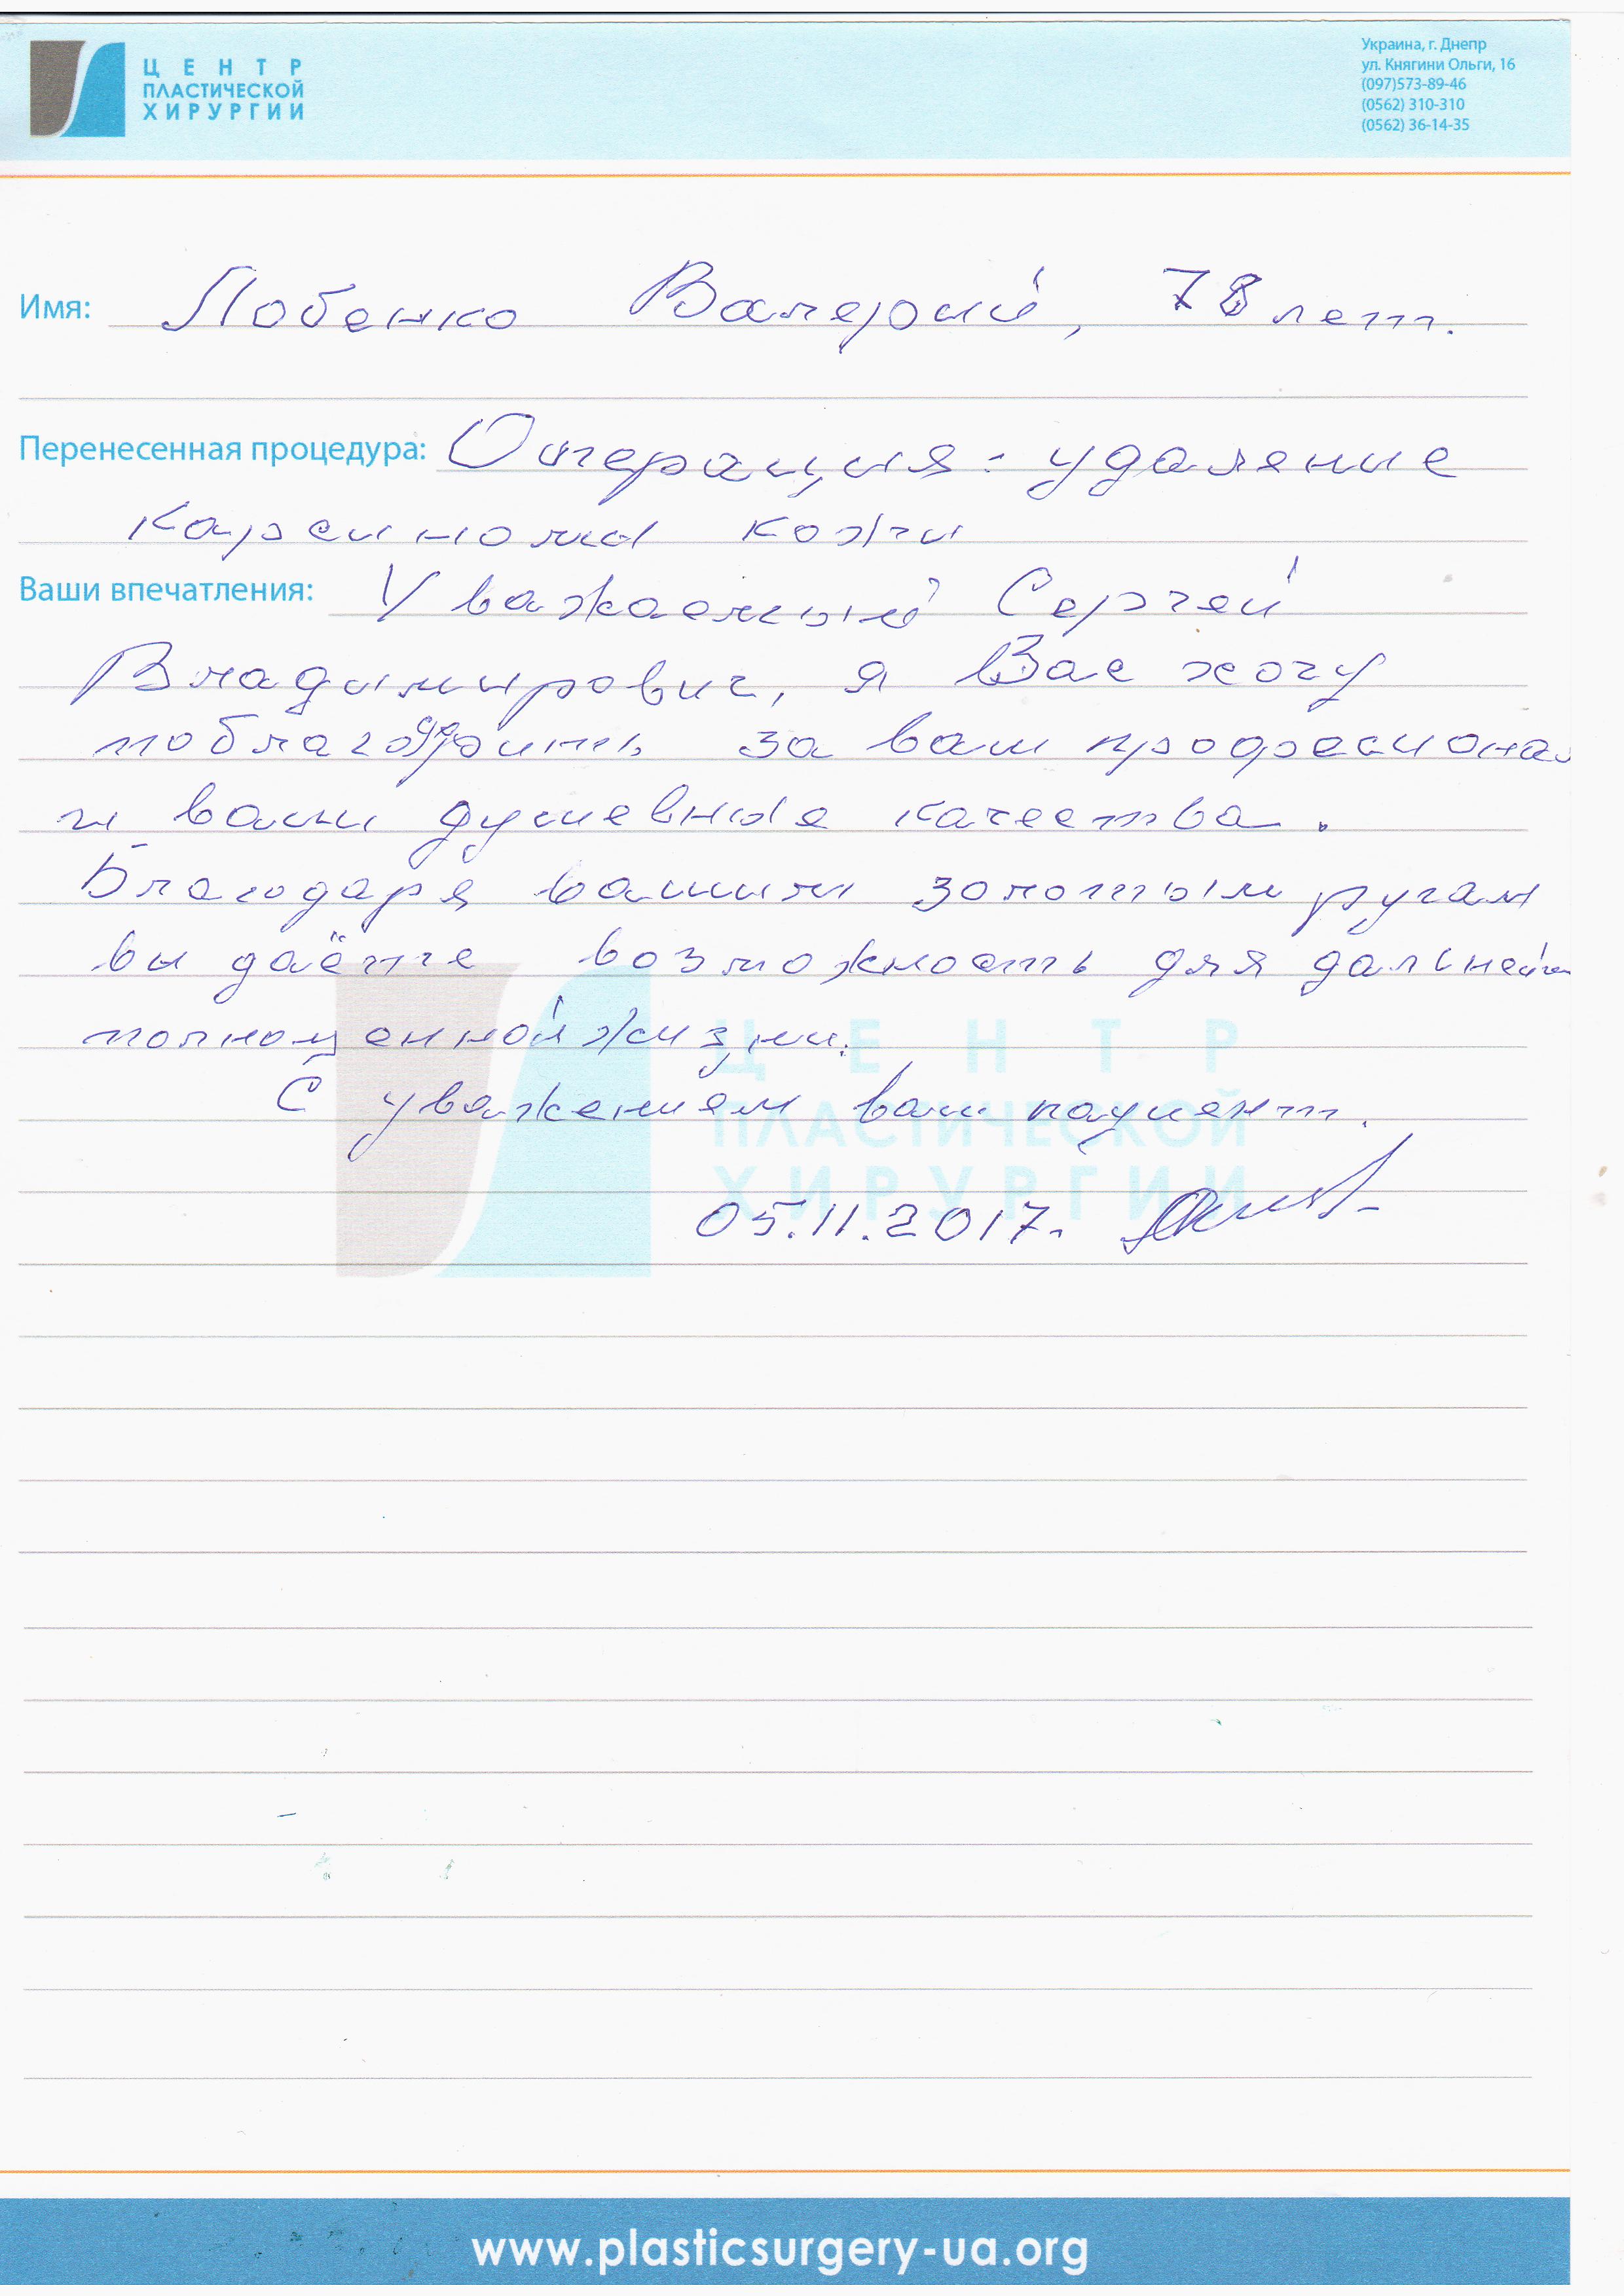 ЦЕНТР
ПЛАСТИЧЕСКОЙ
ХИРУРГИИ
Украина, г. Днепр
ул. Княгини Ольги, 16
(097)573-89-46
(0562) 310-310
(0562) 36-14-35
Имя: Лобенко Валерий, 78 лет.
Перенесенная процедура: Операция - удаление
карсиномы кожи
Ваши впечатления: Уважаемый Сергей
Владимирович, я Вас хочу
поблагодарить за ваш профессионал
и ваши душевные качества.
Благодаря вашим золотым рукам
вы даёте возможность для дальнейшей
полноценной жизни.
С уважением ваш пациент.
05.11.2017.
ЦЕНТР
ПЛАСТИЧЕСКОЙ
ХИРУРГИИ
www.plasticsurgery-ua.org